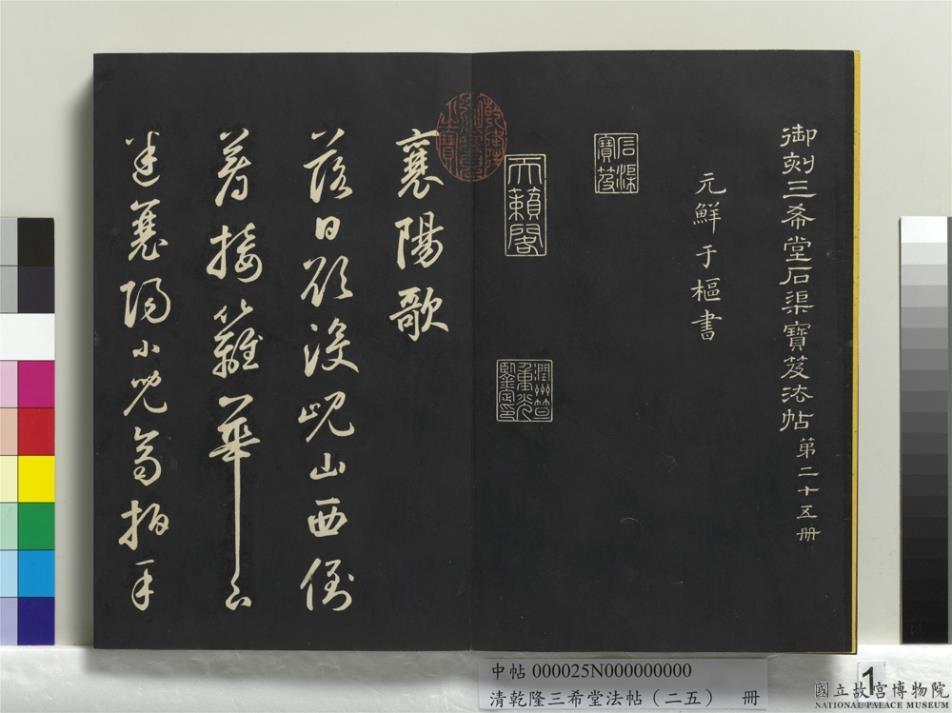 御刻三希堂石渠寶笈法帖第二十五冊
元鮮于樞書
石渠寶笈
天籟閣
襄陽歌
落日欲沒峴山西倒
著接䍦華下
迷襄陽小兒齊拍手
中帖 000025N000000000
清乾隆三希堂法帖（二五） 冊
1
國立故宮博物院
NATIONAL PALACE MUSEUM